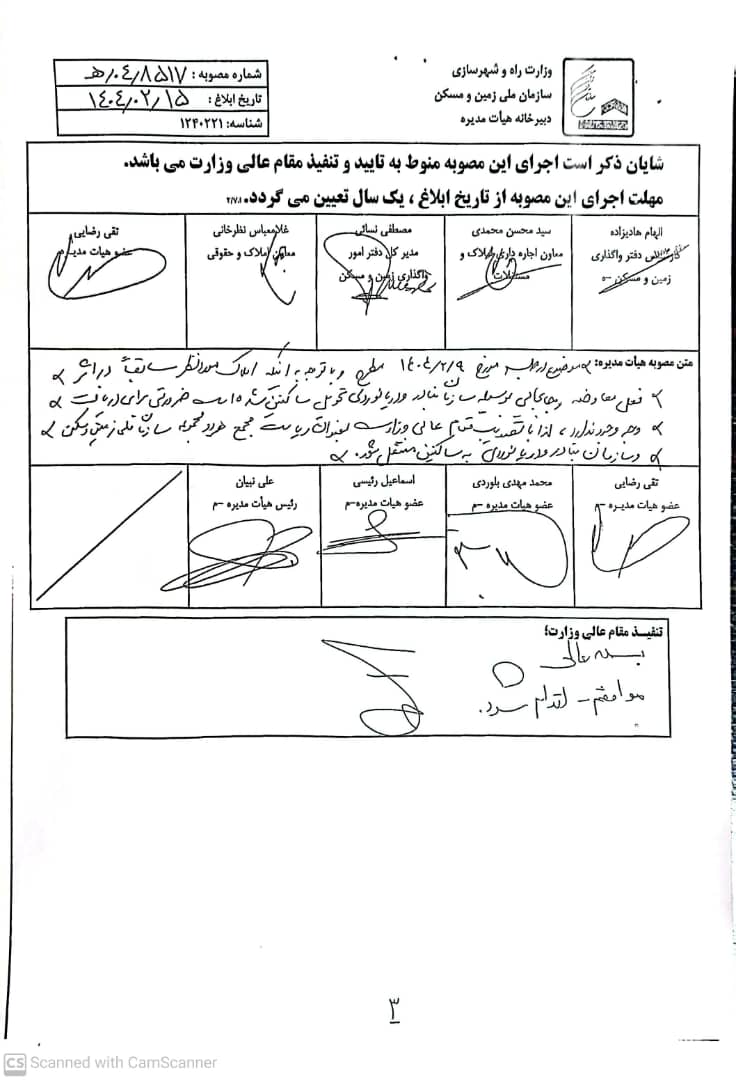 وزارت راه و شهرسازی
سازمان ملی زمین و مسکن
دبیرخانه هیأت مدیره
شماره مصوبه : ۰۴/۸۵۱۷/هـ
تاریخ ابلاغ : ۱۴۰۴،۰۲،۱۵
شناسه: ۱۲۴۰۲۲۱
شایان ذکر است اجرای این مصوبه منوط به تایید و تنفیذ مقام عالی وزارت می باشد.
مهلت اجرای این مصوبه از تاریخ ابلاغ ، یک سال تعیین می گردد.
الهام هادیزاده
دفتر واگذاری
زمین و مسکن
سید محسن محمدی
معاون اجاره داری املاک و
مستغلات
مصطفی نسائی
مدیر کل دفتر امور
واگذاری زمین و مسکن
غلامعباس نظرخانی
معاون املاک و حقوقی
تقی رضایی
عضو هیات مدیره
متن مصوبه هیأت مدیره: موضوع در جلسه مورخ ۱۴۰۴/۲/۹ مطرح و با توجه به اینکه املاک مورد نظر سابقاً در اثر
معاوضه بوسیله سازمان بنادر و دریانوردی تحویل ساکنین شده است ضرورتی برای دریافت
وجه وجود ندارد، لذا با مقام عالی وزارت بعنوان ریاست مجمع سازمان ملی زمین و مسکن
و سازمان بنادر و دریانوردی به ساکنین منتقل شود.
تقی رضایی
عضو هیات مدیره
محمد مهدی بلوردی
عضو هیات مدیره
اسماعیل رئیسی
عضو هیات مدیره
علی نبیان
رئیس هیأت مدیره
تنفیذ مقام عالی وزارت؛
بسمه تعالی
موافقم - اقدام شود.
۳
CS Scanned with CamScanner